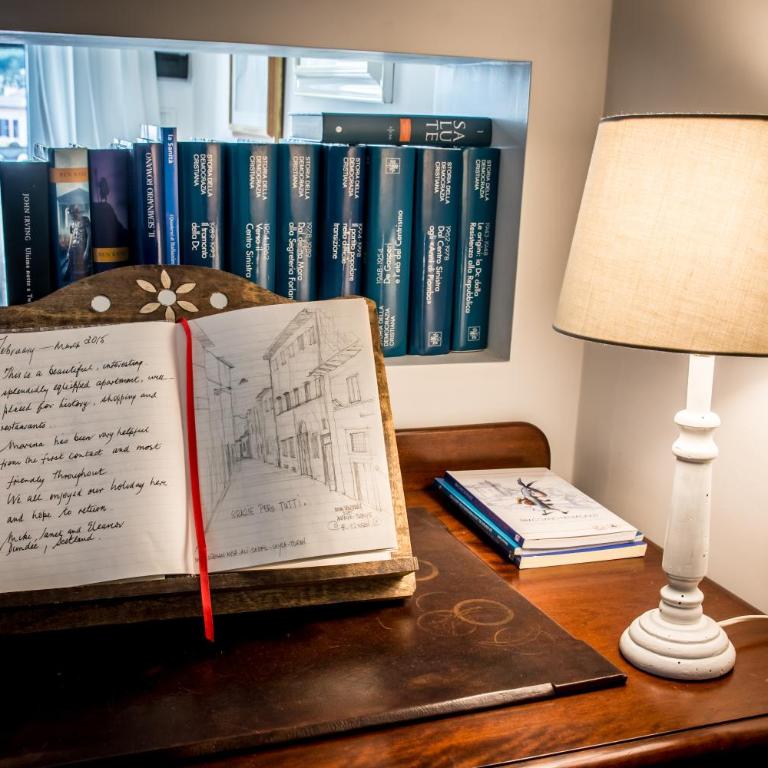 JOHN IRVING
la Sanità
IL SEMINARIO ROMANO
SALUTE
STORIA DELLA DEMOCRAZIA CRISTIANA
1989-1993
Il tramonto della Dc
STORIA DELLA DEMOCRAZIA CRISTIANA
Verso il Centro Sinistra
STORIA DELLA DEMOCRAZIA CRISTIANA
Dal delitto Moro alla Segreteria Forlani
STORIA DELLA DEMOCRAZIA CRISTIANA
partito popolare nella difficile transizione
De Gasperi e l'età del Centrismo
STORIA DELLA DEMOCRAZIA CRISTIANA
1962-1978
Dal Centro Sinistra agli "Anni di Piombo"
STORIA DELLA DEMOCRAZIA CRISTIANA
1943-1948
Le origini: la Dc dalla Resistenza alla Repubblica
February – March 2015
This is a beautiful, interesting
splendidly equipped apartment, well
placed for history, shopping and
restaurants.
Marina has been very helpful
from the first contact and most
friendly throughout
We all enjoyed our holiday here
and hope to return.
Mike, Janet and Eleanor
Dundee, Scotland.
GRAZIE PER TUTTI.